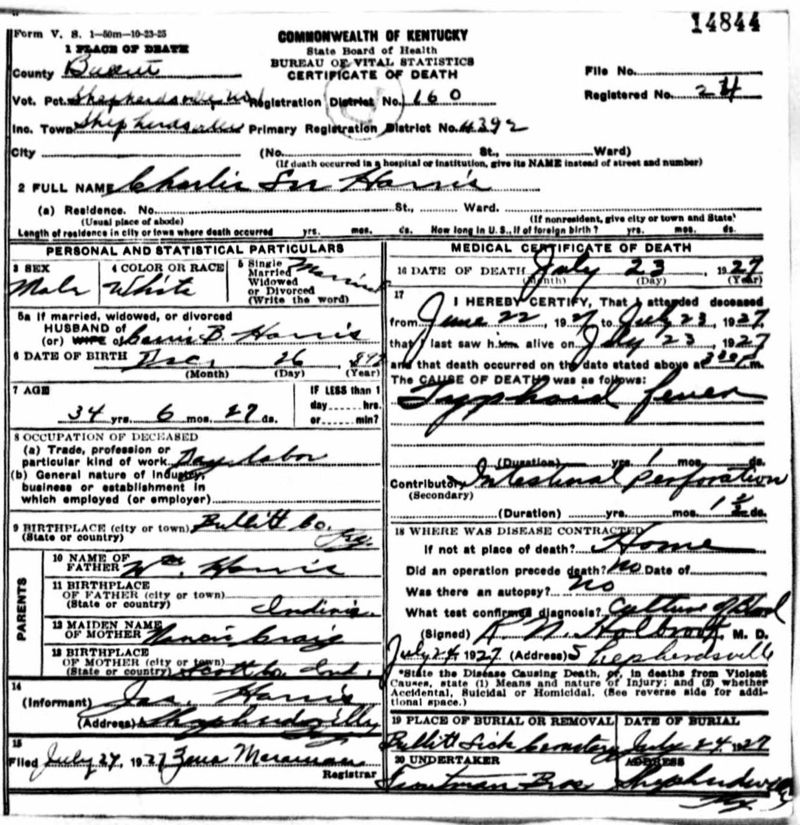 14844
Form V. S. 1-50m-10-23-25
COMMONWEALTH OF KENTUCKY
State Board of Health
BUREAU OF VITAL STATISTICS
CERTIFICATE OF DEATH
1 PLACE OF DEATH
County
File No.
Vot. Pct. Shepherdsville Registration District No. 160
Registered No. 24
Inc. Town Shepherdsville Primary Registration District No. 4392
City (No. St., Ward)
(If death occurred in a hospital or institution, give its NAME instead of street and number)
2 FULL NAME Charlie Harris
(a) Residence. No. St., Ward.
(Usual place of abode) (If nonresident, give city or town and State)
Length of residence in city or town where death occurred yrs. mos. ds. How long in U.S., if of foreign birth? yrs. mos. ds.
PERSONAL AND STATISTICAL PARTICULARS
3 SEX
Male
4 COLOR OR RACE
White
5 Single
Married
Widowed
or Divorced
(Write the word)
Married
5a If married, widowed, or divorced
HUSBAND of
(or) WIFE of B. Harris
6 DATE OF BIRTH Dec. 26 892
(Month) (Day) (Year)
7 AGE
34 yrs. 6 mos. 27 ds.
IF LESS than 1
day hrs.
or min?
8 OCCUPATION OF DECEASED
(a) Trade, profession or
particular kind of work Day labor
(b) General nature of Industry,
business or establishment in
which employed (or employer)
9 BIRTHPLACE (city or town) Bullitt Co.
(State or country) Ky.
PARENTS
10 NAME OF
FATHER Wm. Harris
11 BIRTHPLACE
OF FATHER (city or town)
(State or country) Indiana
12 MAIDEN NAME
OF MOTHER Craig
13 BIRTHPLACE
OF MOTHER (city or town)
(State or country) Scott Co Ind.
14
(Informant) Jas. Harris
(Address) Shepherdsville
15
Filed July 27, 1927
Registrar
MEDICAL CERTIFICATE OF DEATH
16 DATE OF DEATH July 23 1927
(Month) (Day) (Year)
17
I HEREBY CERTIFY, That I attended deceased
from June 22, 1927 to July 23, 1927,
that I last saw him alive on July 23, 1927
and that death occurred on the date stated above at m.
The CAUSE OF DEATH was as follows:
Typhoid fever
(Duration) yrs. 1 mos. ds.
Contributory Intestinal Perforation
(Secondary)
(Duration) yrs. mos. 1½ ds.
18 WHERE WAS DISEASE CONTRACTED
If not at place of death? Home
Did an operation precede death? no Date of
Was there an autopsy? no
What test confirmed diagnosis? Culture of
(Signed) R. N. Holbrook, M. D.
July 24, 1927 (Address) Shepherdsville
*State the Disease Causing Death, or, in deaths from Violent
Causes, state (1) Means and nature of Injury; and (2) whether
Accidental, Suicidal or Homicidal. (See reverse side for addi-
tional space.)
19 PLACE OF BURIAL OR REMOVAL
Bullitt Cemetery
DATE OF BURIAL
July 24 1927
20 UNDERTAKER
Troutman Bros.
ADDRESS
Shepherdsville
Ky.